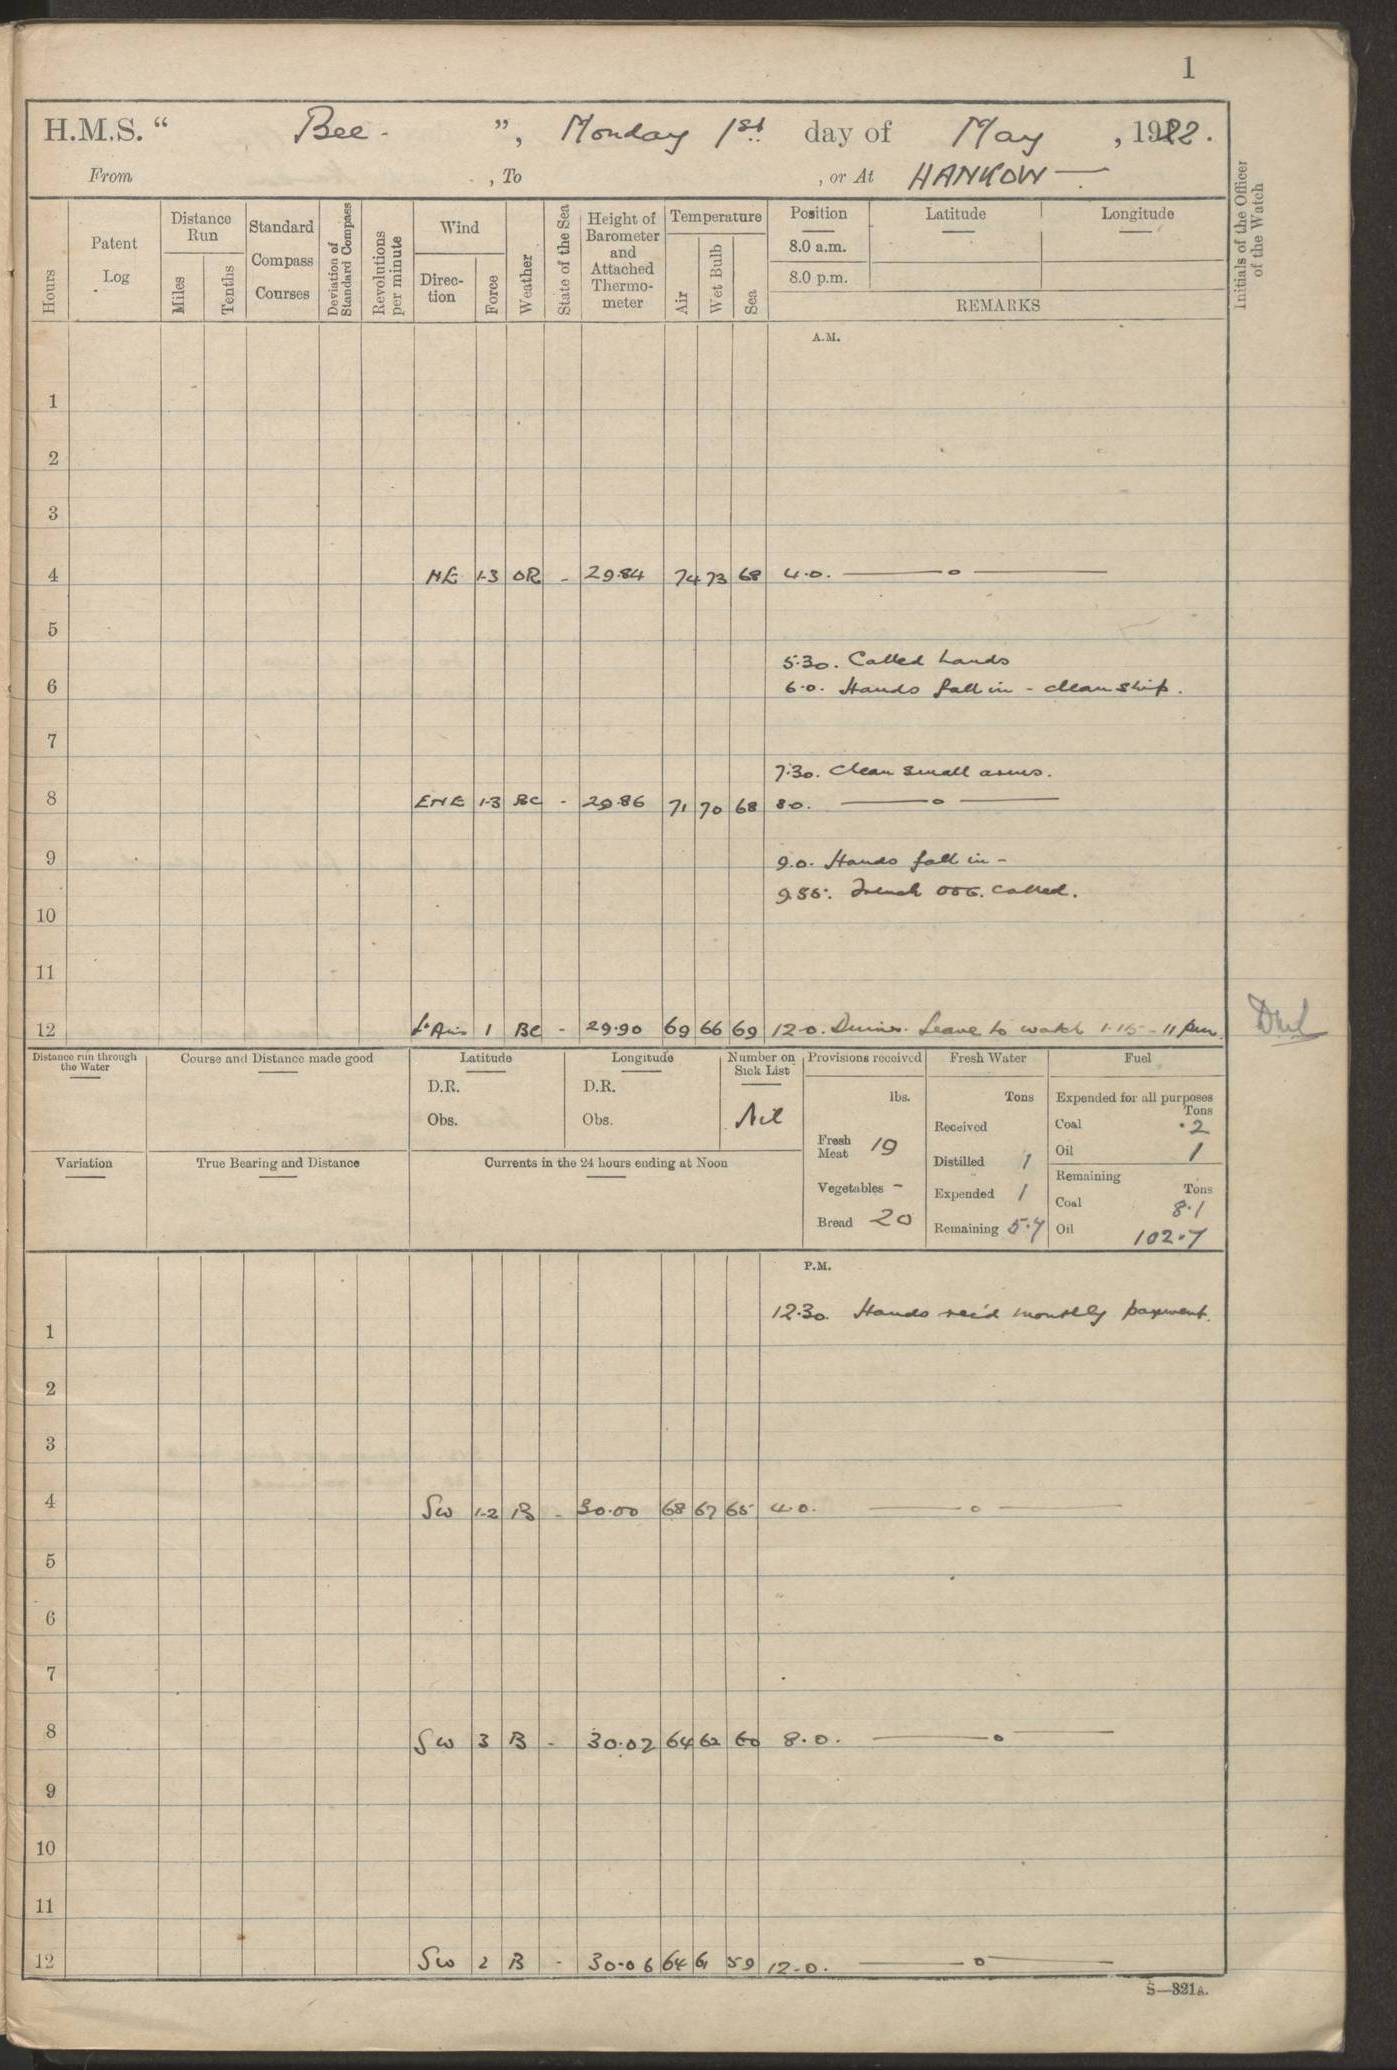 1
H.M.S. “ Bee - ”, Monday 1st day of May , 1922.
From , To , or At HANKOW —
Hours
Patent Log
Distance Run
Miles
Tenths
Standard Compass Courses
Deviation of Standard Compass
Revolutions per minute
Wind
Direc-tion
Force
Weather
State of the Sea
Height of Barometer and Attached Thermo-meter
Temperature
Air
Wet Bulb
Sea
Position
Latitude
Longitude
8.0 a.m.
8.0 p.m.
REMARKS
Initials of the Officer of the Watch
A.M.
1
2
3
4 NE 1-3 OR - 29.84 74 73 68 4.0. —— o ——
5
5.30. Called hands
6 6.0. Hands fall in - clean ship.
7
7.30. Clean small arms.
8 ENE 1-3 BC - 29.86 71 70 68 8.0. —— o ——
9 9.0. Hands fall in -
9.55. French OOG. called.
10
11
12 Lt Airs 1 BC - 29.90 69 66 69 12.0. Dinner. Leave to watch 1.15 - 11 pm
Distance run through the Water
Course and Distance made good
Latitude
D.R.
Obs.
Longitude
D.R.
Obs.
Number on Sick List
Nil
Provisions received
lbs.
Fresh Meat 19
Vegetables -
Bread 20
Fresh Water
Tons
Received
Distilled 1
Expended 1
Remaining 5.7
Fuel
Expended for all purposes
Tons
Coal .2
Oil 1
Remaining
Tons
Coal 8.1
Oil 102.7
Variation
True Bearing and Distance
Currents in the 24 hours ending at Noon
P.M.
12.30. Hands rec'd monthly payment.
1
2
3
4 SW 1-2 B - 30.00 68 67 65 4.0. —— o ——
5
6
7
8 SW 3 B - 30.02 64 62 60 8.0. —— o ——
9
10
11
12 SW 2 B - 30.06 64 61 59 12.0. —— o ——
S—321A.